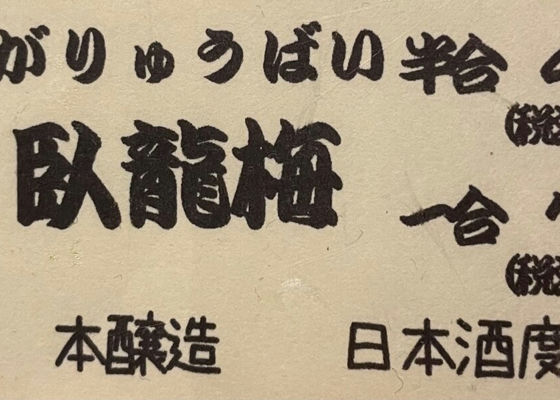 がりゅうばい 半合
臥龍梅
(税
一合
(税
本醸造 日本酒度